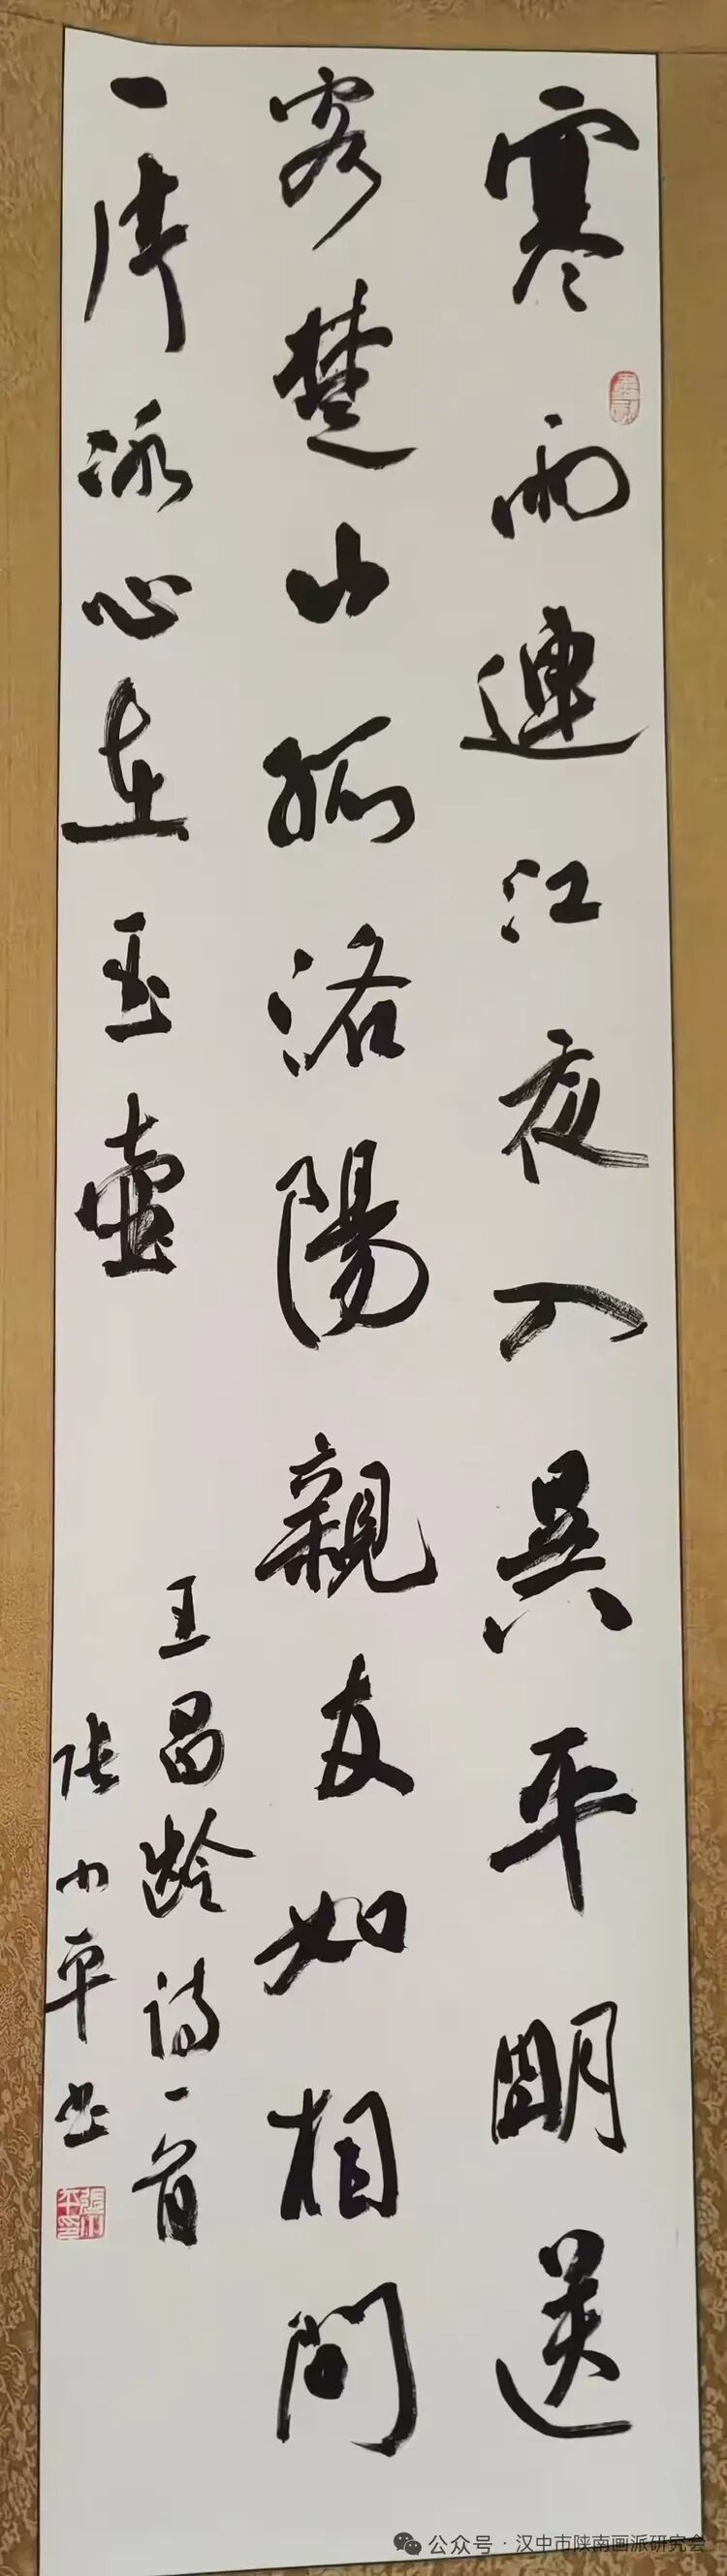 寒雨連江夜入吴平明送
客楚山孤洛陽親友如相問
一片冰心在玉壺
王昌龄诗一首
张小平书
公众号·汉中市陕南画派研究会